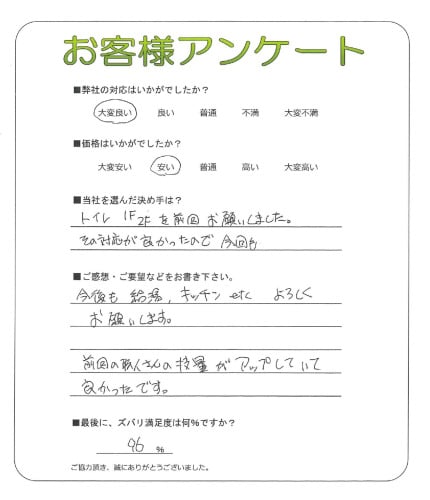 お客様アンケート
■弊社の対応はいかがでしたか?
大変良い 良い 普通 不満 大変不満
■価格はいかがでしたか?
大変安い 安い 普通 高い 大変高い
■当社を選んだ決め手は?
トイレ 1F2Fを前回お願いしました。
その対応が良かったので今回も
■ご感想・ご要望などをお書き下さい。
今後も給湯,キッチンetc よろしく
お願いします。
前回の職人さんの技量がアップしていて
良かったです。
■最後に、ズバリ満足度は何%ですか?
96 %
ご協力頂き、誠にありがとうございました。